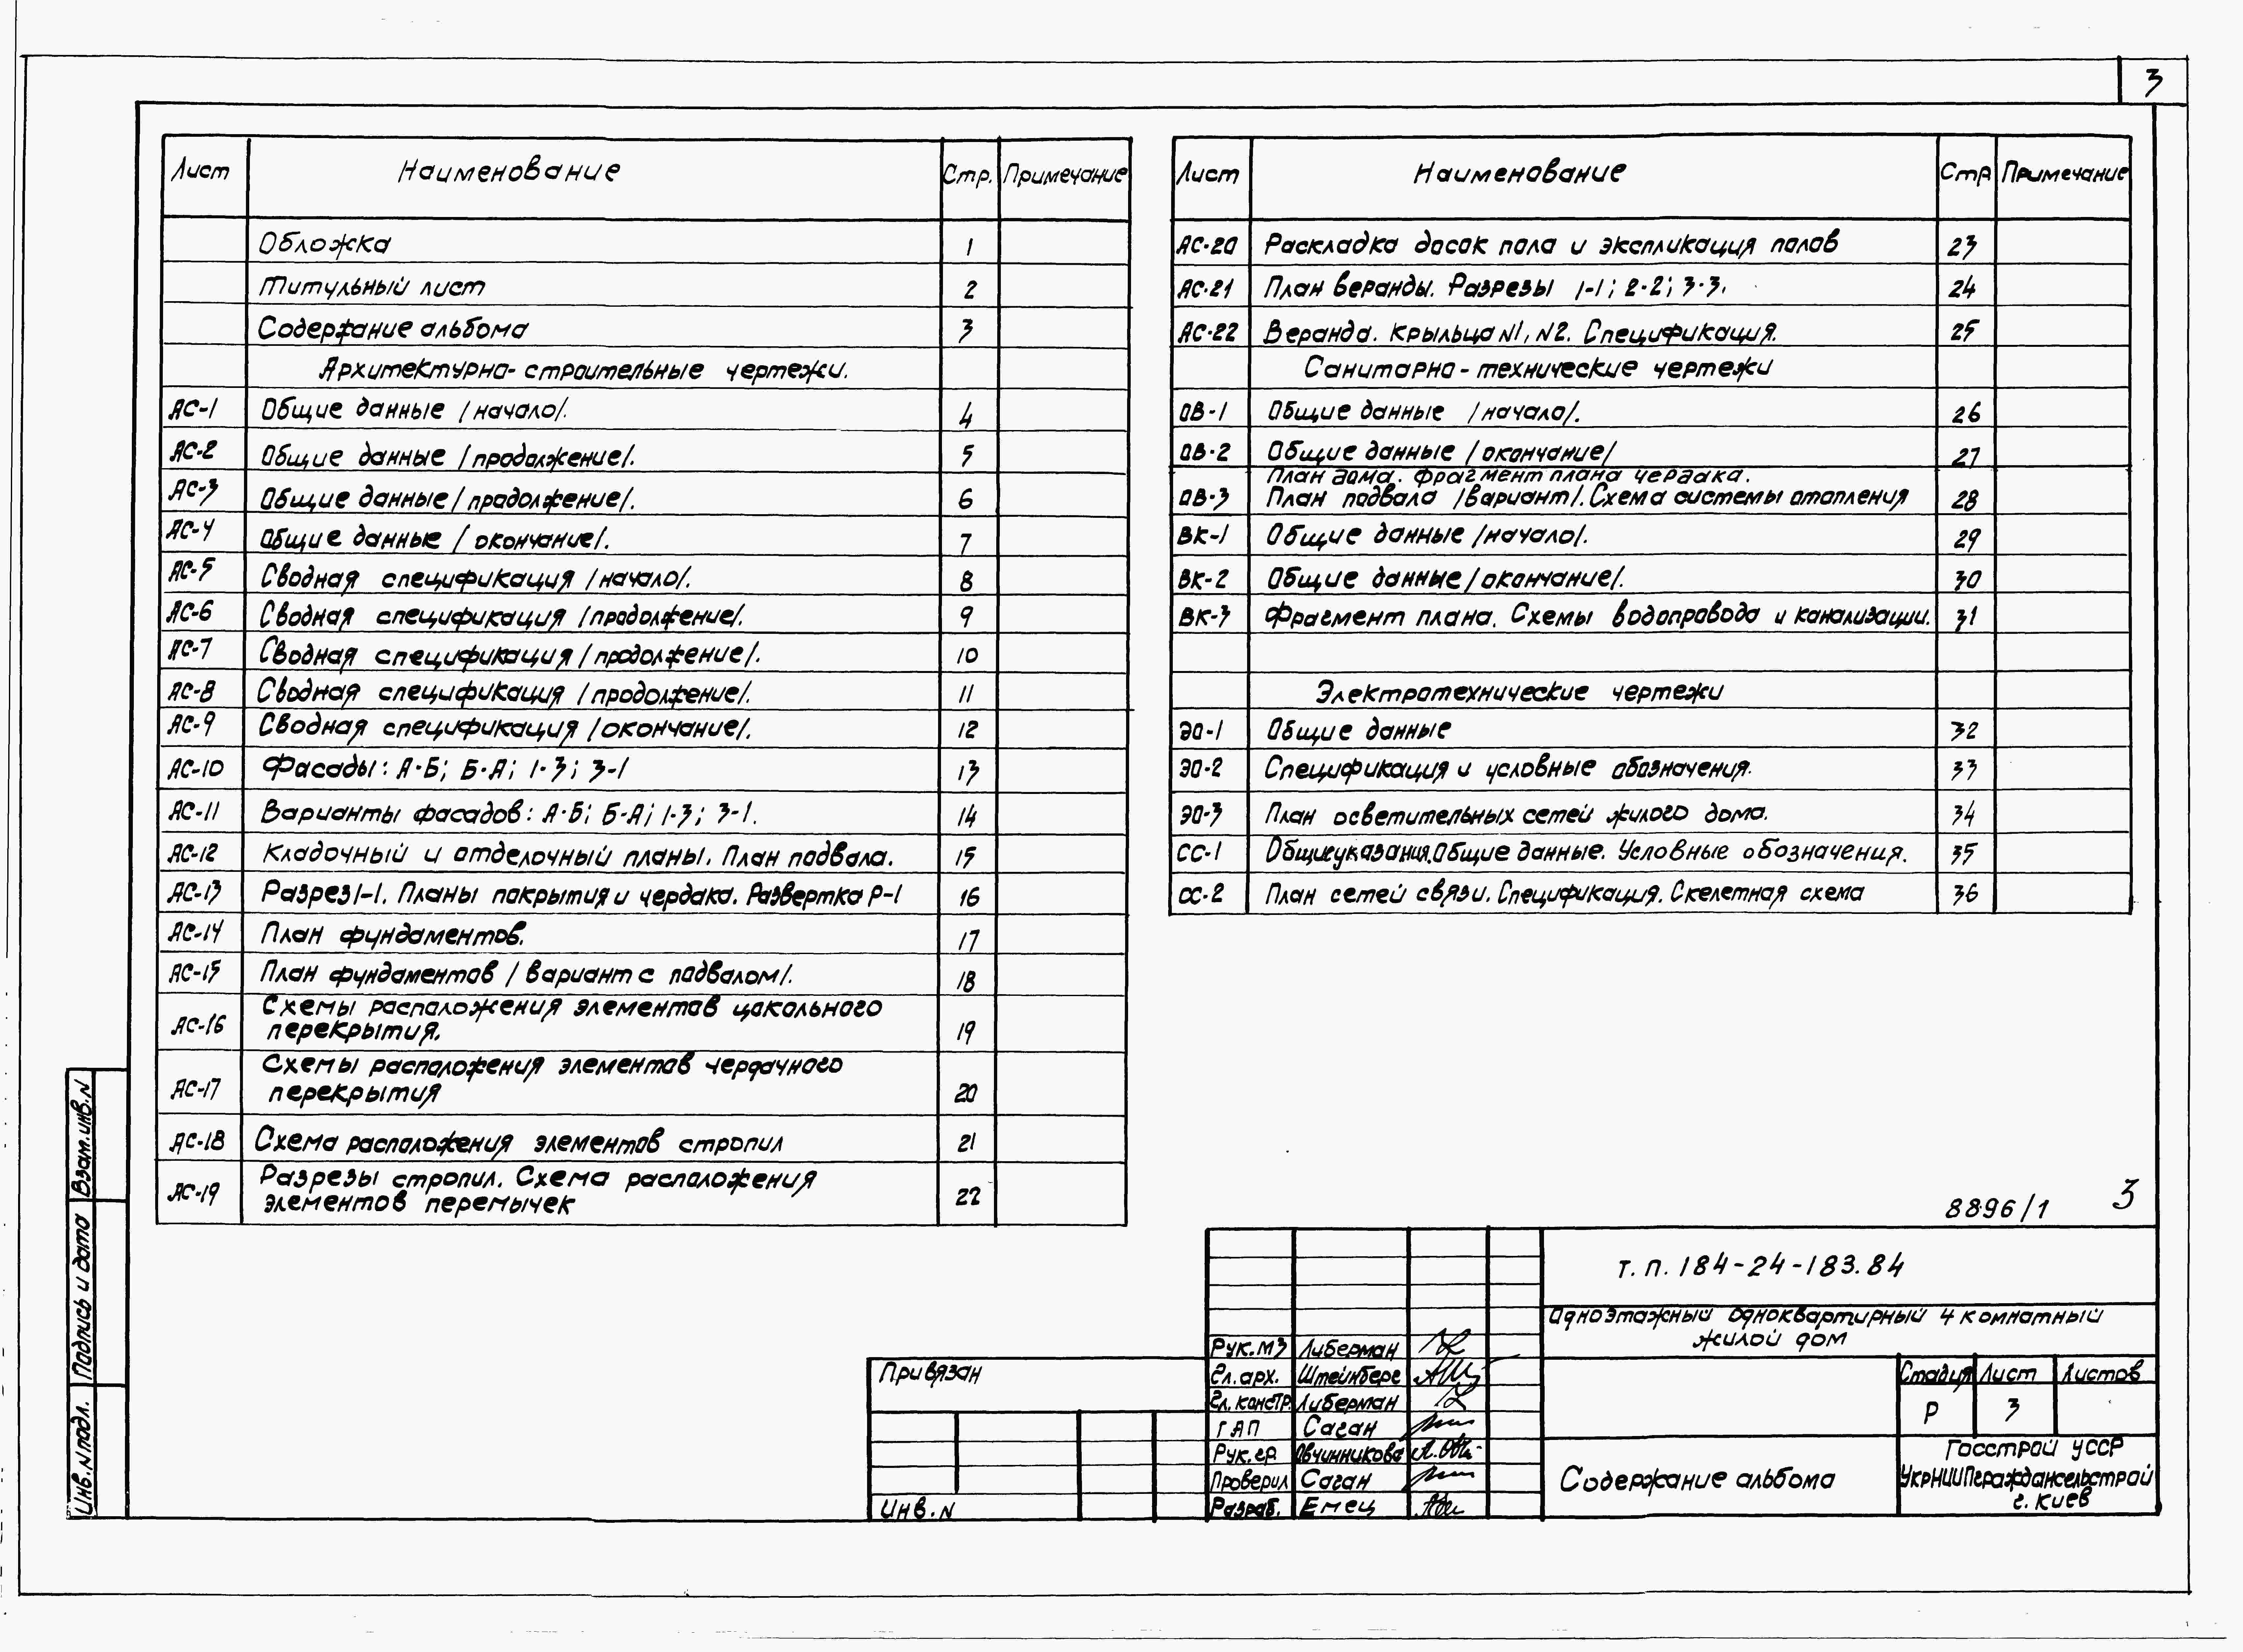 3
Лист Наименование Стр. Примечание
Обложка 1
Титульный лист 2
Содержание альбома 3
Архитектурно-строительные чертежи.
АС-1 Общие данные /начало/. 4
АС-2 Общие данные /продолжение/. 5
АС-3 Общие данные /продолжение/. 6
АС-4 Общие данные /окончание/. 7
АС-5 Сводная спецификация /начало/. 8
АС-6 Сводная спецификация /продолжение/. 9
АС-7 Сводная спецификация /продолжение/. 10
АС-8 Сводная спецификация /продолжение/. 11
АС-9 Сводная спецификация /окончание/. 12
АС-10 Фасады: А-Б; Б-А; 1-3; 3-1 13
АС-11 Варианты фасадов: А-Б; Б-А; 1-3; 3-1. 14
АС-12 Кладочный и отделочный планы. План подвала. 15
АС-13 Разрез 1-1. Планы покрытия и чердака. Развертка Р-1 16
АС-14 План фундаментов. 17
АС-15 План фундаментов /вариант с подвалом/. 18
Схемы расположения элементов цокольного
АС-16 перекрытия. 19
Схемы расположения элементов чердачного
АС-17 перекрытия 20
АС-18 Схема расположения элементов стропил 21
Разрезы стропил. Схема расположения
АС-19 элементов перемычек 22
Лист Наименование Стр Примечание
АС-20 Раскладка досок пола и экспликация полов 23
АС-21 План веранды. Разрезы 1-1; 2-2; 3-3. 24
АС-22 Веранда. Крыльца N1, N2. Спецификация. 25
Санитарно-технические чертежи
ОВ-1 Общие данные /начало/. 26
ОВ-2 Общие данные /окончание/ 27
План дома. Фрагмент плана чердака.
ОВ-3 План подвала /вариант/. Схема системы отопления 28
ВК-1 Общие данные /начало/. 29
ВК-2 Общие данные /окончание/. 30
ВК-3 Фрагмент плана. Схемы водопровода и канализации. 31
Электротехнические чертежи
ЭО-1 Общие данные 32
ЭО-2 Спецификация и условные обозначения. 33
ЭО-3 План осветительных сетей жилого дома. 34
СС-1 Общие указания. Общие данные. Условные обозначения. 35
СС-2 План сетей связи. Спецификация. Скелетная схема 36
8896/1 3
Т.П. 184-24-183.84
Одноэтажный одноквартирный 4 комнатный
жилой дом
Рук.МЗ Либерман
Гл.арх. Штейнберг
Гл.констр. Либерман
ГАП Саган
Рук.гр. Овчинникова
Проверил Саган
Разраб. Емец
Привязан
Инв.N
Стадия Лист Листов
Р 3
Содержание альбома
Госстрой УССР
УкрНИИПграждансельстрой
г. Киев
Взам.инв.N
Подпись и дата
Инв.N подл.